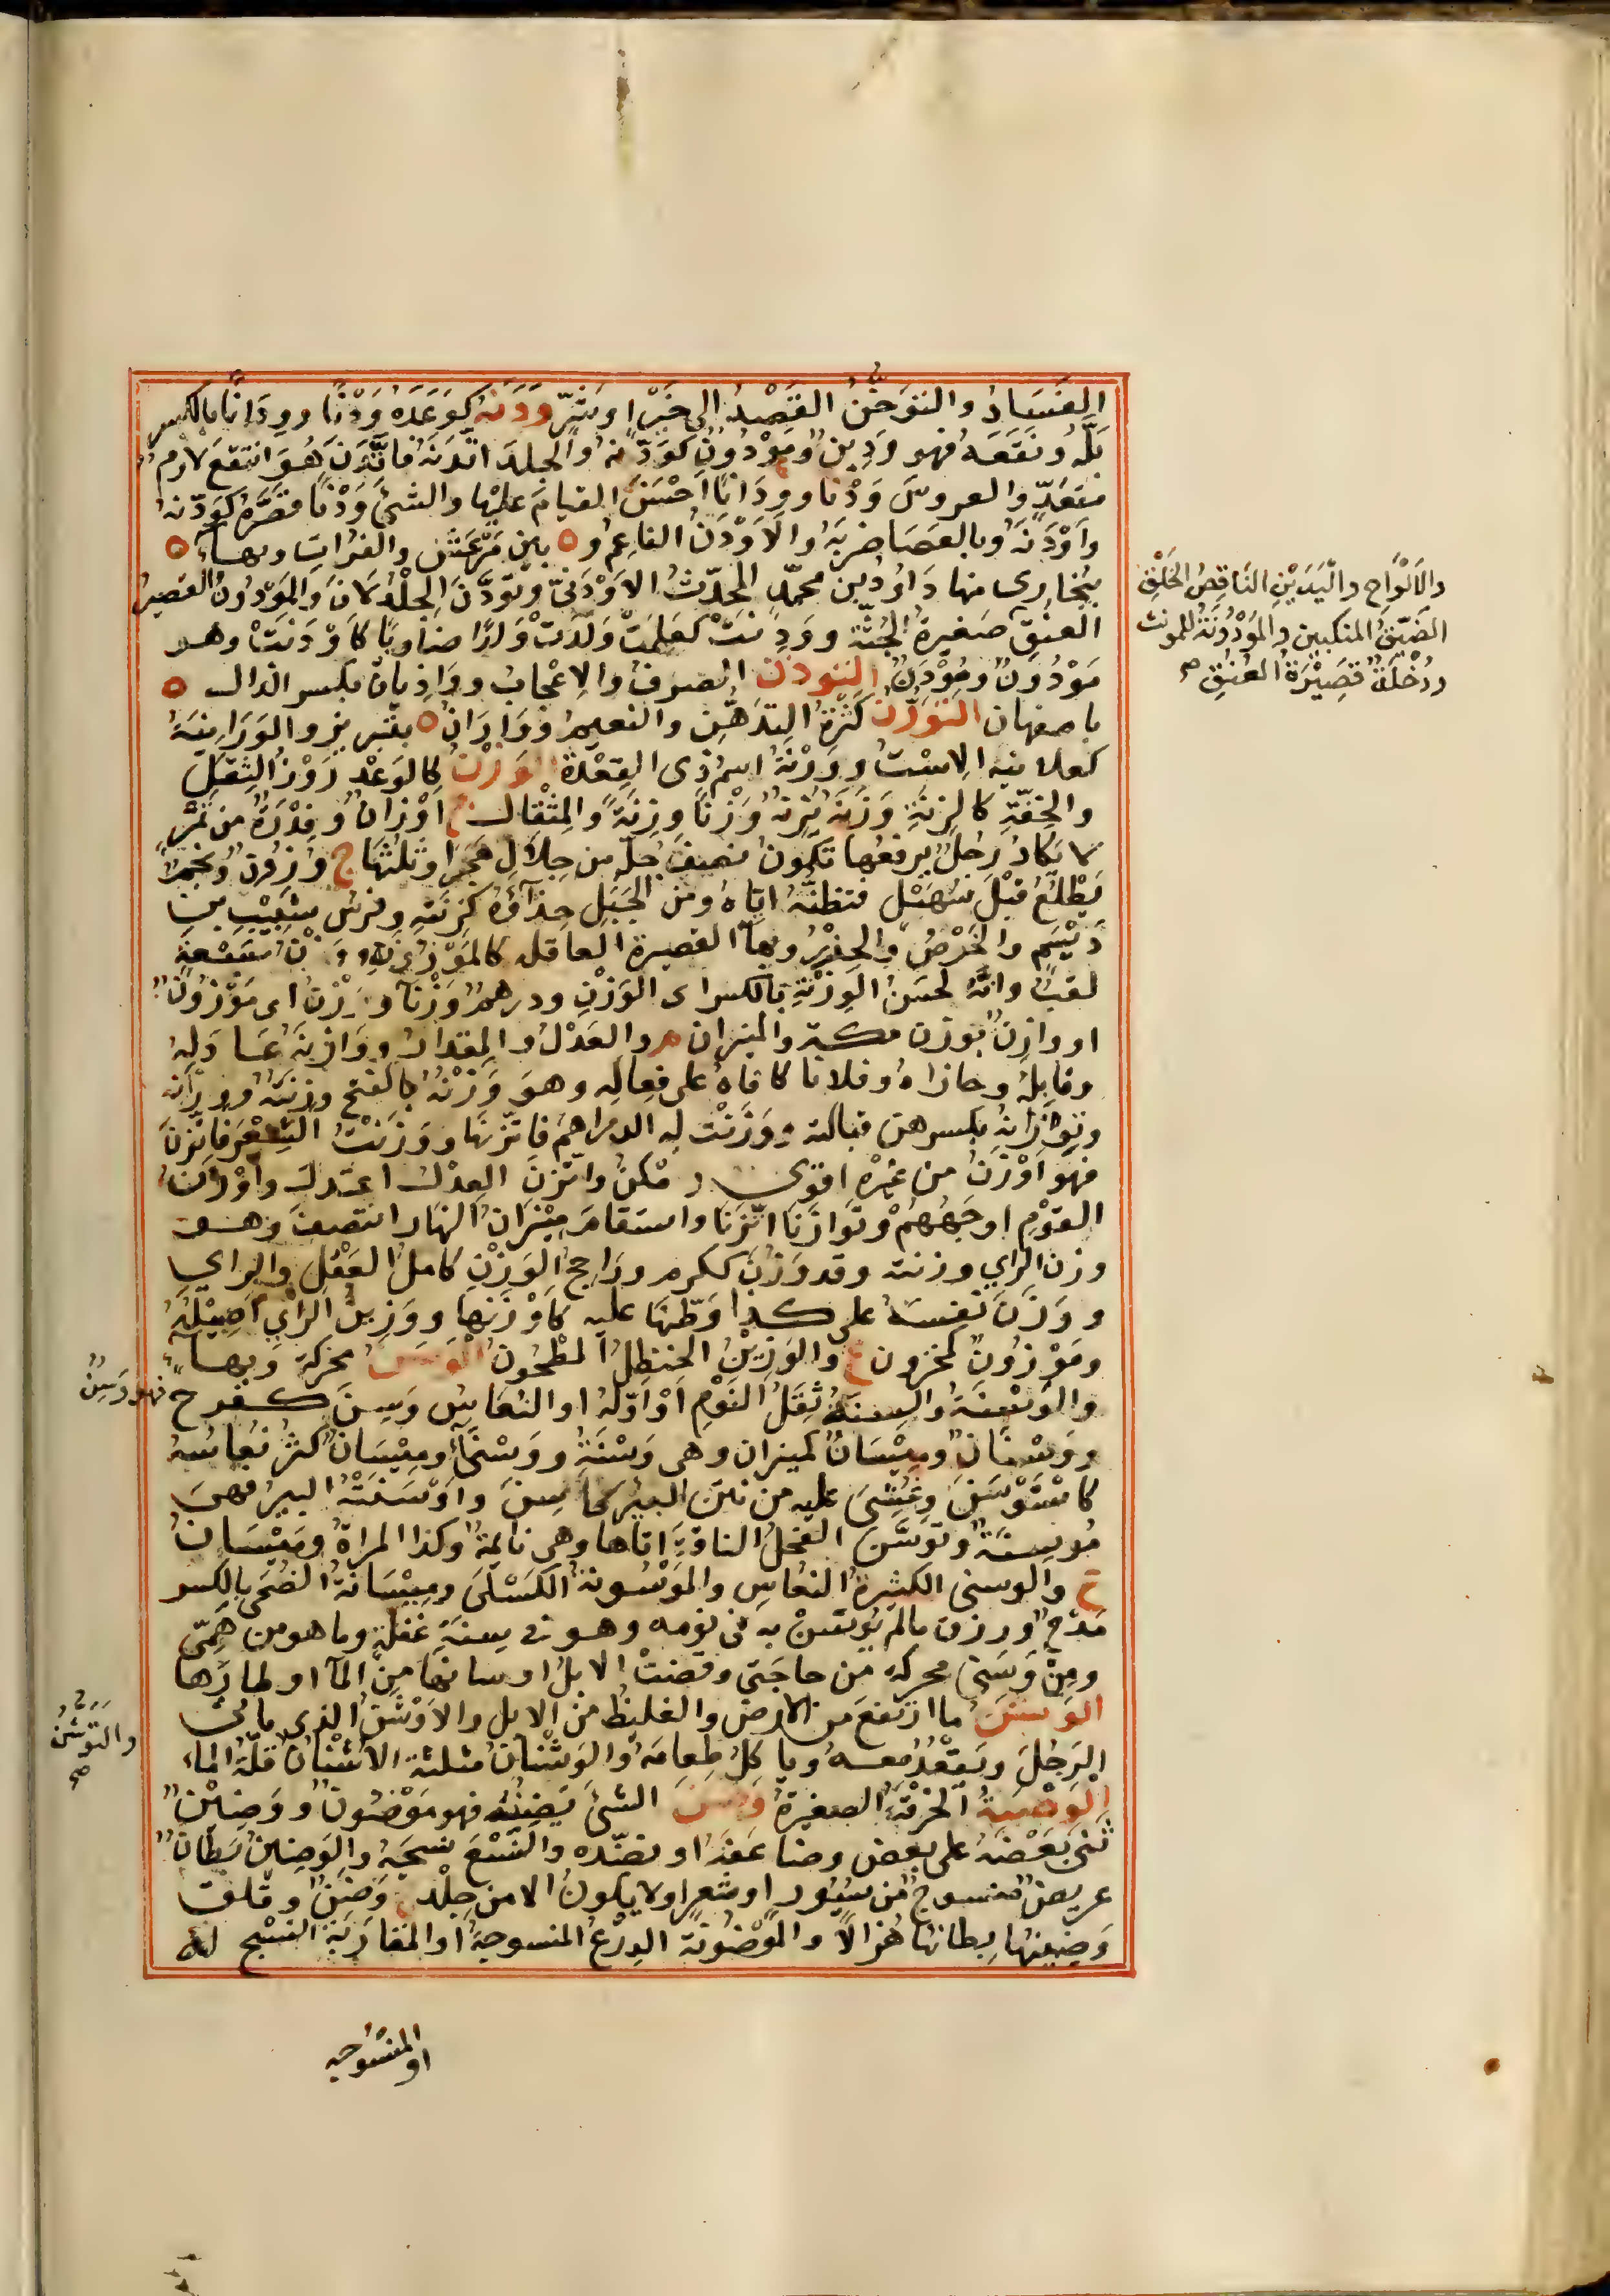 الفَسَادُ والتَوَحُّنُ القَصْدُ الى خَيْرٍ او شَرٍّ وَدَنَهُ كوَعَدَهُ وَدْنًا ووِدَانًا بالكسر
بَلَّهُ ونَقَعَهُ فهو وَدِينٌ ومَوْدُونٌ كوَدَّنَهُ والجِلدَ اتَّدَنَهُ فاتَّدَنَ هُوَ انتقعَ لازمٌ
متعَدٍّ والعروسَ وَدْنًا ووِدَانًا اَحْسَنَ القيامَ عليْها والشئَ وَدْنًا قصَّرَهُ كوَدَّنهُ
وأوْدَنَهُ وبالعَصَا ضربَهُ والاَوْدَنُ الناعِمُ و ة بين مَرْعَشَ والفُراتِ وبهاءٍ ة
ببُخارى منها دَاوُدُ بن محمّدٍ المحدّثُ الاَوْدَنىُّ وتودَّنَ الجِلْدُ لَانَ والمَوْدُونُ القصيرُ
العنقِ صَغيرةُ الجُثّة ووَدِنَتْ كعَلِمَتْ ولَدَتْ وَلَدًا ضاويًا كأوْدَنَتْ وهو
مَوْدُونٌ ومُوْدَنٌ التوذن الصرفُ والاِعْجابُ ووَاذِنانُ بكسر الذال ة
باصفهان التَوَرُّنُ كَثْرَةُ التَدَهُّنِ والنعيمُ ووَارَانُ ة بتبريز والوَرَانِيَةُ
كعلانيه الاِسْتُ ووَرْنَةُ اسمُ ذى القِعْدة الوَزْنُ كالوَعْدِ رَوْزُ الثِقَلِ
والخِفَّةِ كالزِنَةِ وَزَنَهُ يَزِنُهُ وَزْنًا وزِنَةً والمِثْقالُ ج اَوْزَانٌ وفِدْرَةٌ من تَمْرٍ
لا يَكَادُ رَجُلٌ يرفعُها تكونُ نصفَ جُلَّةٍ من جِلالِ هَجَرَ او ثلثَها ج وُزُونٌ ونجمٌ
يَطْلُعُ قبْلَ سُهَيْلٍ فتظنُّهُ ايّاهُ ومن الجَبَلِ حِذَآؤُه كزِنَتِهِ وفرسُ شَبيبِ بن
دَيْسَمٍ والخَرْصُ والحِزْرُ وبهاءٍ القصيرة العاقله كالمَوْزُونَهِ ووَزْنُ سَبْعةٍ
لقبٌ وانَّهُ لحَسَنُ الوِزْنَةِ بالكسر اى الوَزْنِ ودرهمٌ وَزْنًا ووَزْنٌ اى مَوْزُونٌ
او وازِنٌ بوزن مكة والميزان م والعَدْلُ والمِقدارُ ووَازَنَهُ عَادَلهُ
وقابلهُ وحاذاهُ وفلانًا كافاهُ على فِعالِهِ وهوَ وَزْنَهُ بالفتح وزِنَتَهُ ووِزَانَه
وبِوِزَانِهِ بكسرهن قبالته ووَزَنْتُ له الدراهِمَ فاتّزنَها ووَزَنْتُ الشِعْرَ فاتَّزنَ
فهو اَوْزَنُ من غيْرِهِ اقوى وامْكنُ واتَّزنَ العِدْلُ اعتدلَ واَوْزَنُ
القوْمِ اوجَهُهُمْ وتَوَازَنَا اتّزنَا واستقامَ مِيْزَانُ النهار انتصفَ وهو
وزن الرأي وزنته وقد وَزُنَ ككرم ورَاجِحُ الوَزْنِ كاملُ العَقْلِ والراي
ووَزَنَ نفسَهُ على كذا وَطَّنَها عليه كاَوْزَنَها ووَزِينُ الرَأْيِ اَصِيْلُهُ
ومَوْزُونٌ كمخزون ع والوَزِيْنُ الحنظلُ المطحُونُ الوسن محركة وبهاءٍ
والوَسْنَةُ والسِنَةُ ثِقَلُ النَوْمِ اَوْ اَوّلُهُ او النُعَاسُ وَسِنَ كفرح
ووَسْنَانُ ومِيْسَانٌ كميزان وهى وَسْنَةٌ ووَسْنَى ومِيْسَانٌ كثُرَ نُعاسُه
كاسْتَوْسَنَ وغُشِىَ عليه من نتن البئر كاَسِنَ واَوْسَنَتْهُ البيرُ فهىَ
مُوسِنَةٌ وتوَسَّنَ الفحلُ الناقةَ اتاها وهى نايمةٌ وكذا المراةَ ومَيْسَانُ
ع والوسنى الكثيرةُ النعَاسِ والمَوْسُونَةُ الكَسْلَى ومِيْسَانَةُ الضُحَى بالكسر
مَدْحٌ ورزق مالم يُوسَنْ به فى نومه وهو فى سِنَةٍ غفلةٍ وما هو من هَمّى
ومِنْ وَسَنى محركه من حاجَتى وقضتْ الابلُ اوسانَها منَ المآ اوطارَها
الوَشْنُ ما ارتفعَ من الارضِ والغليظُ من الابلِ والاَوْشَنُ الذى ياتى
الرَجُلَ ويَقْعُدُ معهُ وياكلُ طعامَهُ والوُشْنَانُ مثلثة الاُشْنَانُ قلّةُ الماءِ
الوضنة الخرقَةُ الصغيرةُ وضن الشئَ يَضِنُهُ فهو مَوْضُونٌ ووَضِيْنٌ
ثَنَى بَعْضَهُ على بعضٍ وضاعَفَهُ او نضّده والنِسْعَ نسجَهُ والوَضِينُ بَطانٌ
عريضٌ منسوجٌ من سُيُورٍ او شعرٍ او لا يكونُ الا من جِلْدٍ ج وُضُنٌ وقَلِقَ
وَضِينُها بِطانُها هُزالًا والمَوْضُونَة الدِرْعُ المنسوجةُ او المقاربَة النَسْج
او المنسُوجه
والاَلْوَاحِ والَيَدَيْنِ النَاقِصُ الخَلْقِ
الضَيّقُ المنكبين والمَوْدُونَةُ للمونث
ودُخَلَةٌ قصِيْرَةُ العُنقِ ص
فهو وَسِنٌ
والتَوَشُّنُ
ص